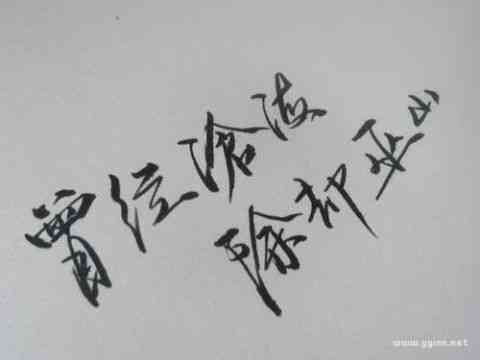 曾经沧海
除却巫山
www.yginn.net